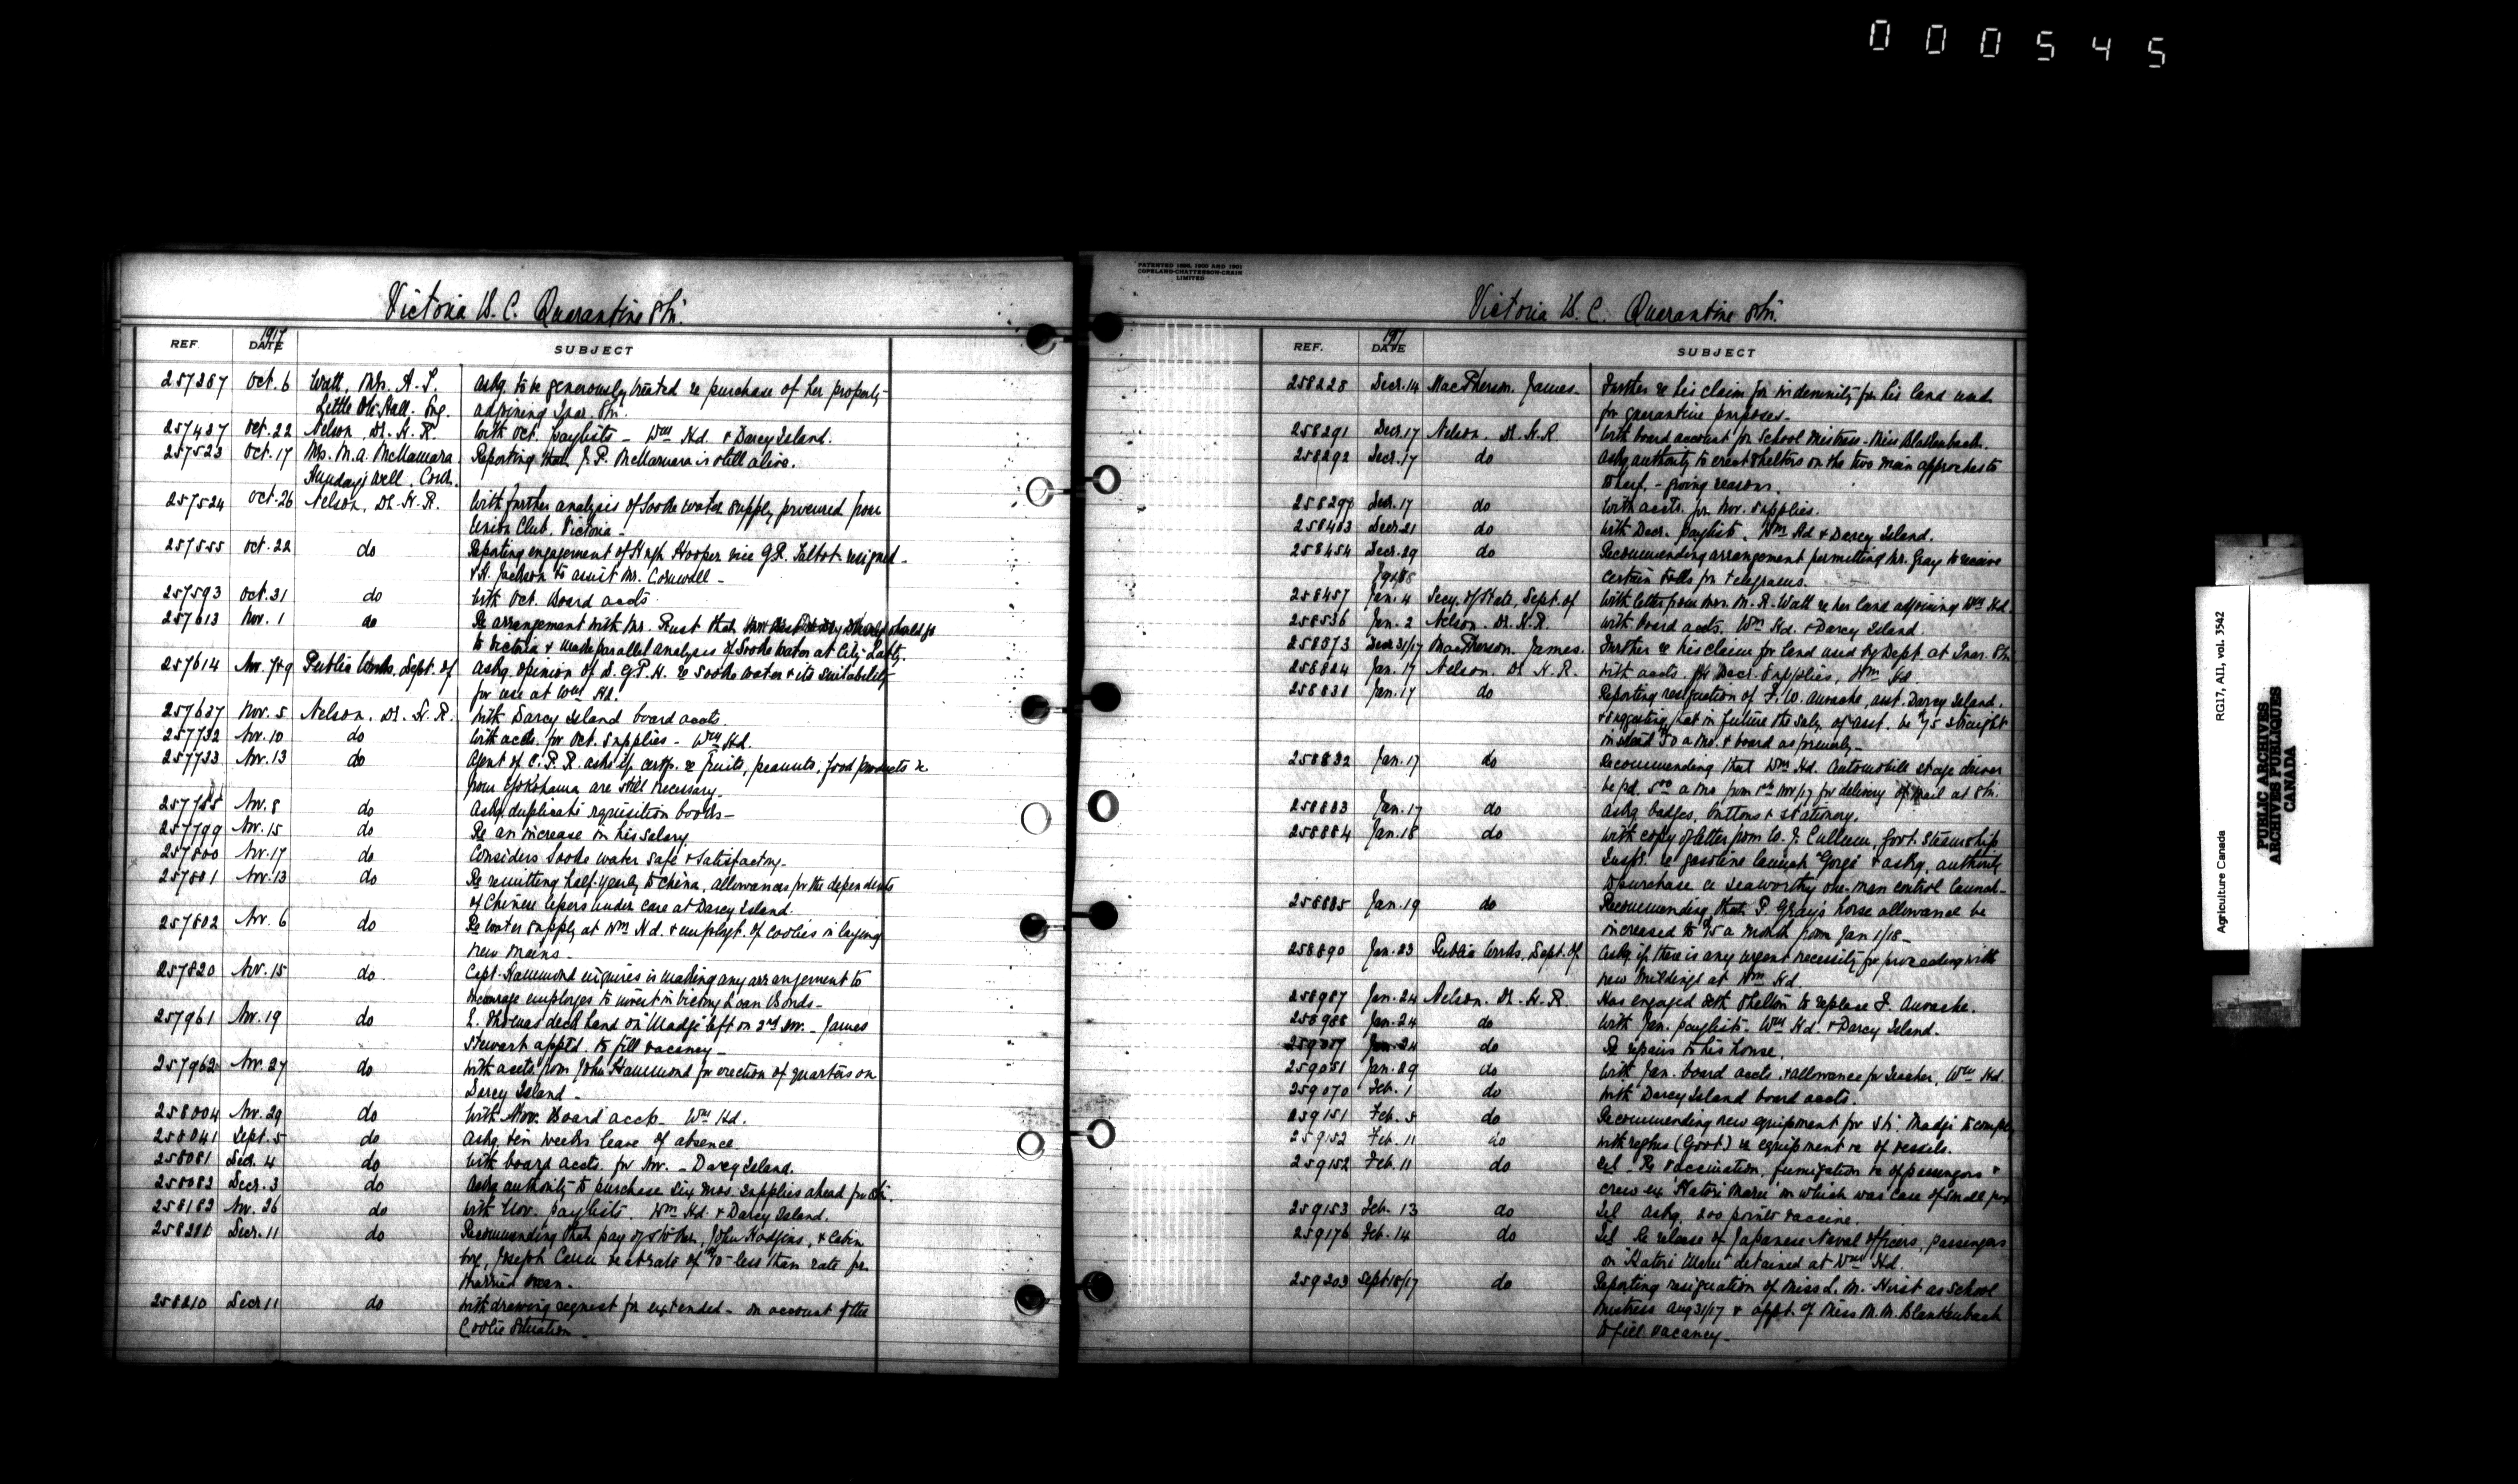 000545
Victoria B. C. Quarantine Stn.
1917
REF. DATE SUBJECT
257287 Oct. 6 Watt, Mrs. A. T. Askg. to be generously treated re purchase of her property
Little Hall. Eng. adjoining Quar. Stn.
257427 Oct. 22 Nelson, Dr. H. R. With Oct. paylists - Wm Hd. & Darcy Island.
257523 Oct. 17 Mrs. M. A. McNamara Reporting that J. P. McNamara is still alive.
Sundays Well, Cork.
257524 Oct. 26 Nelson, Dr. H. R. With further analysis of Sooke water supply procured from
Union Club, Victoria -
257555 Oct. 22 do Reporting engagement of Hugh Hooper vice G. R. Talbot resigned -
& H. Jackson to assist Mr. Cornwall -
257593 Oct. 31 do With Oct. Board accts.
257613 Nov. 1 do Re arrangement with Mr. Rust that should go
to Victoria & make parallel analysis of Sooke water at City Labty.
257614 Nov. 7&9 Public Works, Dept. of Askg. opinion of D. G. P. H. re Sooke water & its suitability
for use at Wm Hd.
257637 Nov. 5 Nelson, Dr. H. R. With Darcy Island board accts.
257732 Nov. 10 do With accts. for Oct. supplies - Wm Hd.
257733 Nov. 13 do Agent of C. P. R. asks if certfs. re fruits, peanuts, food products &c
from Yokohama are still necessary -
257755 Nov. 8 do Askg. duplicate requisition books -
257799 Nov. 15 do Re an increase in his salary
257800 Nov. 17 do Considers Sooke water safe & satisfactory -
257801 Nov. 13 do Re remitting half-yearly to China, allowances for the dependents
of Chinese lepers under care at Darcy Island.
257802 Nov. 6 do Re water supply at Wm Hd. & employt. of coolies in laying
new mains -
257820 Nov. 15 do Capt. Hammond enquires is making any arrangement to
encourage employes to invest in Victory Loan Bonds -
257961 Nov. 19 do L. Thomas deck hand on "Madge" left on 3rd Nov. - James
Stewart apptd. to fill vacancy -
257962 Nov. 27 do With accts. from John Hammond for erection of quarters on
Darcy Island -
258004 Nov. 29 do With Nov. Board accts - Wm Hd.
258041 Sept. 5 do Askg. ten weeks leave of absence
258081 Decr. 4 do With board accts. for Nov. - Darcy Island.
258082 Decr. 3 do Askg authority to purchase six mos. supplies ahead for Stn.
258182 Nov. 26 do With Nov. paylists. Wm Hd. & Darcy Island.
258210 Decr. 11 do Recommending that pay of stoker, John Hodgins, & Cabin
boy, Joseph be at rate of $10 - less than rate for
married man -
258210 Decr 11 do Withdrawing request for extended - on account of the
Coolie situation
PATENTED 1899, 1900 AND 1901
COPELAND-CHATTERSON-CRAIN
LIMITED
Victoria B. C. Quarantine Stn.
1917
REF. DATE SUBJECT
258228 Decr. 14 MacPherson, James - Further re his claim for indemnity for his land used
for quarantine purposes -
258291 Decr. 17 Nelson, Dr. H. R With board account for School Mistress - Miss Blankenbach.
258292 Decr. 17 do Askg authority to erect shelters on the two main approches to
wharf. - giving reasons.
258297 Decr. 17 do With accts. for Nov. supplies.
258403 Decr. 21 do With Decr. paylists, Wm Hd & Darcy Island.
258454 Decr. 29 do Recommending arrangement permitting Mr. Gray to receive
certain tolls for telegrams.
1918
258457 Jan. 4 Secy. of State, Dept. of With letter from Mrs. M. R. Watt re her land adjoining Wm Hd.
258536 Jan. 2 Nelson, Dr. H. R. With board accts. Wm Hd. & Darcy Island
258573 Decr 31/17 MacPherson, James. Further re his claim for land used by Dept. at Quar. Stn
258824 Jan. 17 Nelson, Dr. H. R. With accts. for Decr. Supplies, Wm Hd.
258831 Jan. 17 do Reporting resignation of F. W. Auvache, asst. Darcy Island.
& suggesting that in future the saly. of asst. be $75 straight
instead 50 a mo. & board as formerly -
258832 Jan. 17 do Recommending that Wm Hd. Automobile stage driver
be pd. 5.00 a mo. from 1st Nov/17 for delivery of mail at Stn.
258883 Jan. 17 do Askg badges, buttons & stationery.
258884 Jan. 18 do With copy of letter from W. J. Cullum, Govt. Steamship
Inspr. re gasoline launch "Gorge" & askg. authority
to purchase a seaworthy one-man control launch -
258885 Jan. 19 do Recommending that P. Gray's horse allowance be
increased to $15 a month from Jan 1/18 -
258890 Jan. 23 Public Works, Dept. of Askg if there is any urgent necessity for proceeding with
new buildings at Wm Hd
258987 Jan. 24 Nelson. Dr. H. R. Has engaged Seth Shelton to replace F. Auvache.
258988 Jan. 24 do With Jan. paylists - Wm Hd. & Darcy Island.
259017 Jan. 24 do Re repairs to his house.
259051 Jan. 29 do With Jan. board accts. & allowance for Teacher, Wm Hd.
259070 Feb. 1 do With Darcy Island board accts.
259151 Feb. 5 do Recommending new equipment for Str. Madge to comply
259152 Feb. 11 do with regtns (Govt) re equipment &c of vessels.
259152 Feb. 11 do Tel - Re vaccination, fumigation &c of passengers &
crew ex "Katori Maru" on which was case of small pox
259153 Feb. 13 do Tel askg. 200 points vaccine.
259176 Feb. 14 do Tel Re release of Japanese Naval Officers, passengers
on "Katori Maru" detained at Wm Hd.
259203 Sept 18/17 do Reporting resignation of Miss L. M. Hirst as School
Mistress Aug 31/17 & appt. of Miss M. M. Blankenbach
to fill vacancy -
Agriculture Canada RG17, AII, vol. 3542
PUBLIC ARCHIVES
ARCHIVES PUBLIQUES
CANADA